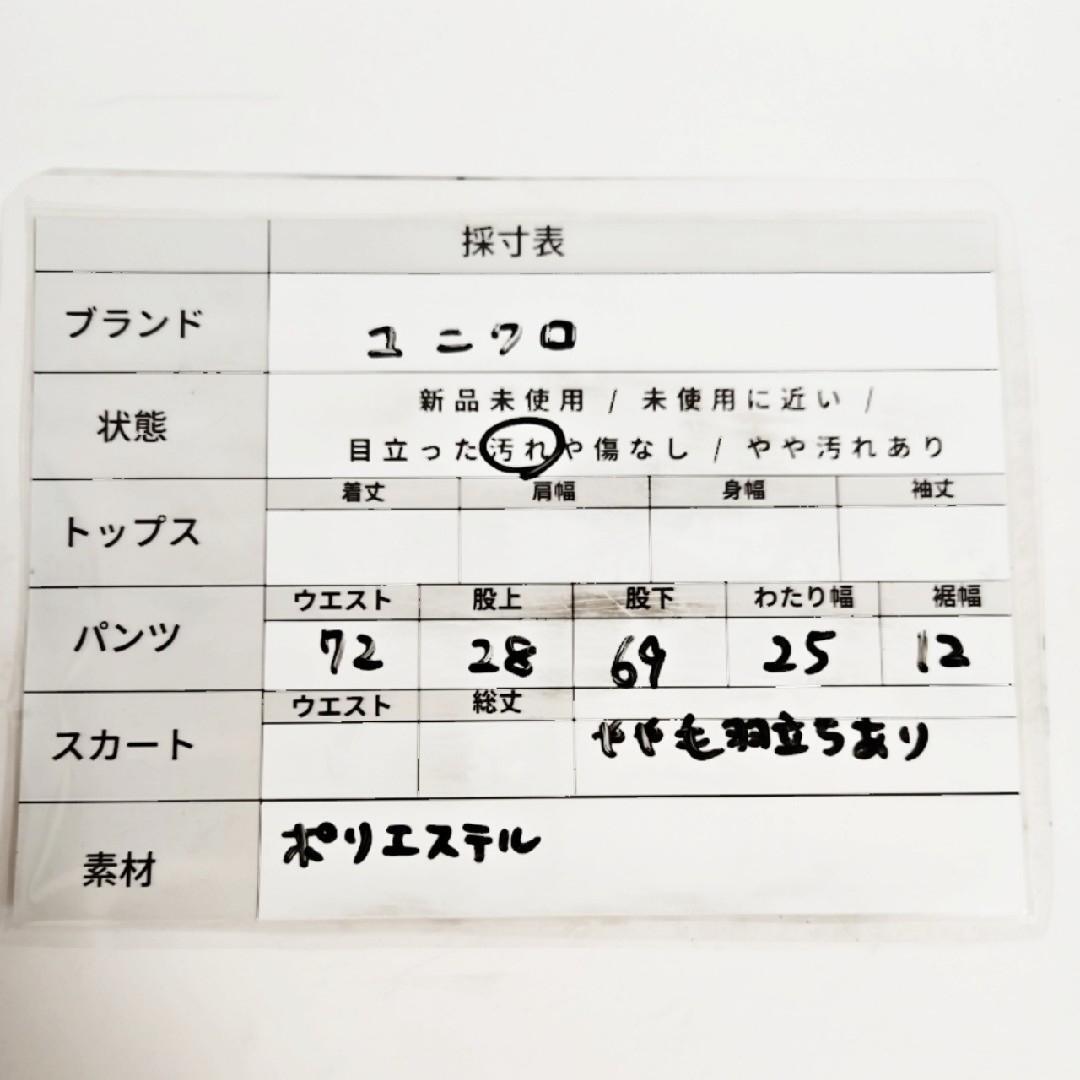 採寸表
ブランド ユニクロ
状態 新品未使用 / 未使用に近い /
目立った汚れや傷なし / やや汚れあり
着丈 肩幅 身幅 袖丈
トップス
ウエスト 股上 股下 わたり幅 裾幅
パンツ 72 28 69 25 12
ウエスト 総丈
スカート やや毛羽立ちあり
素材 ポリエステル